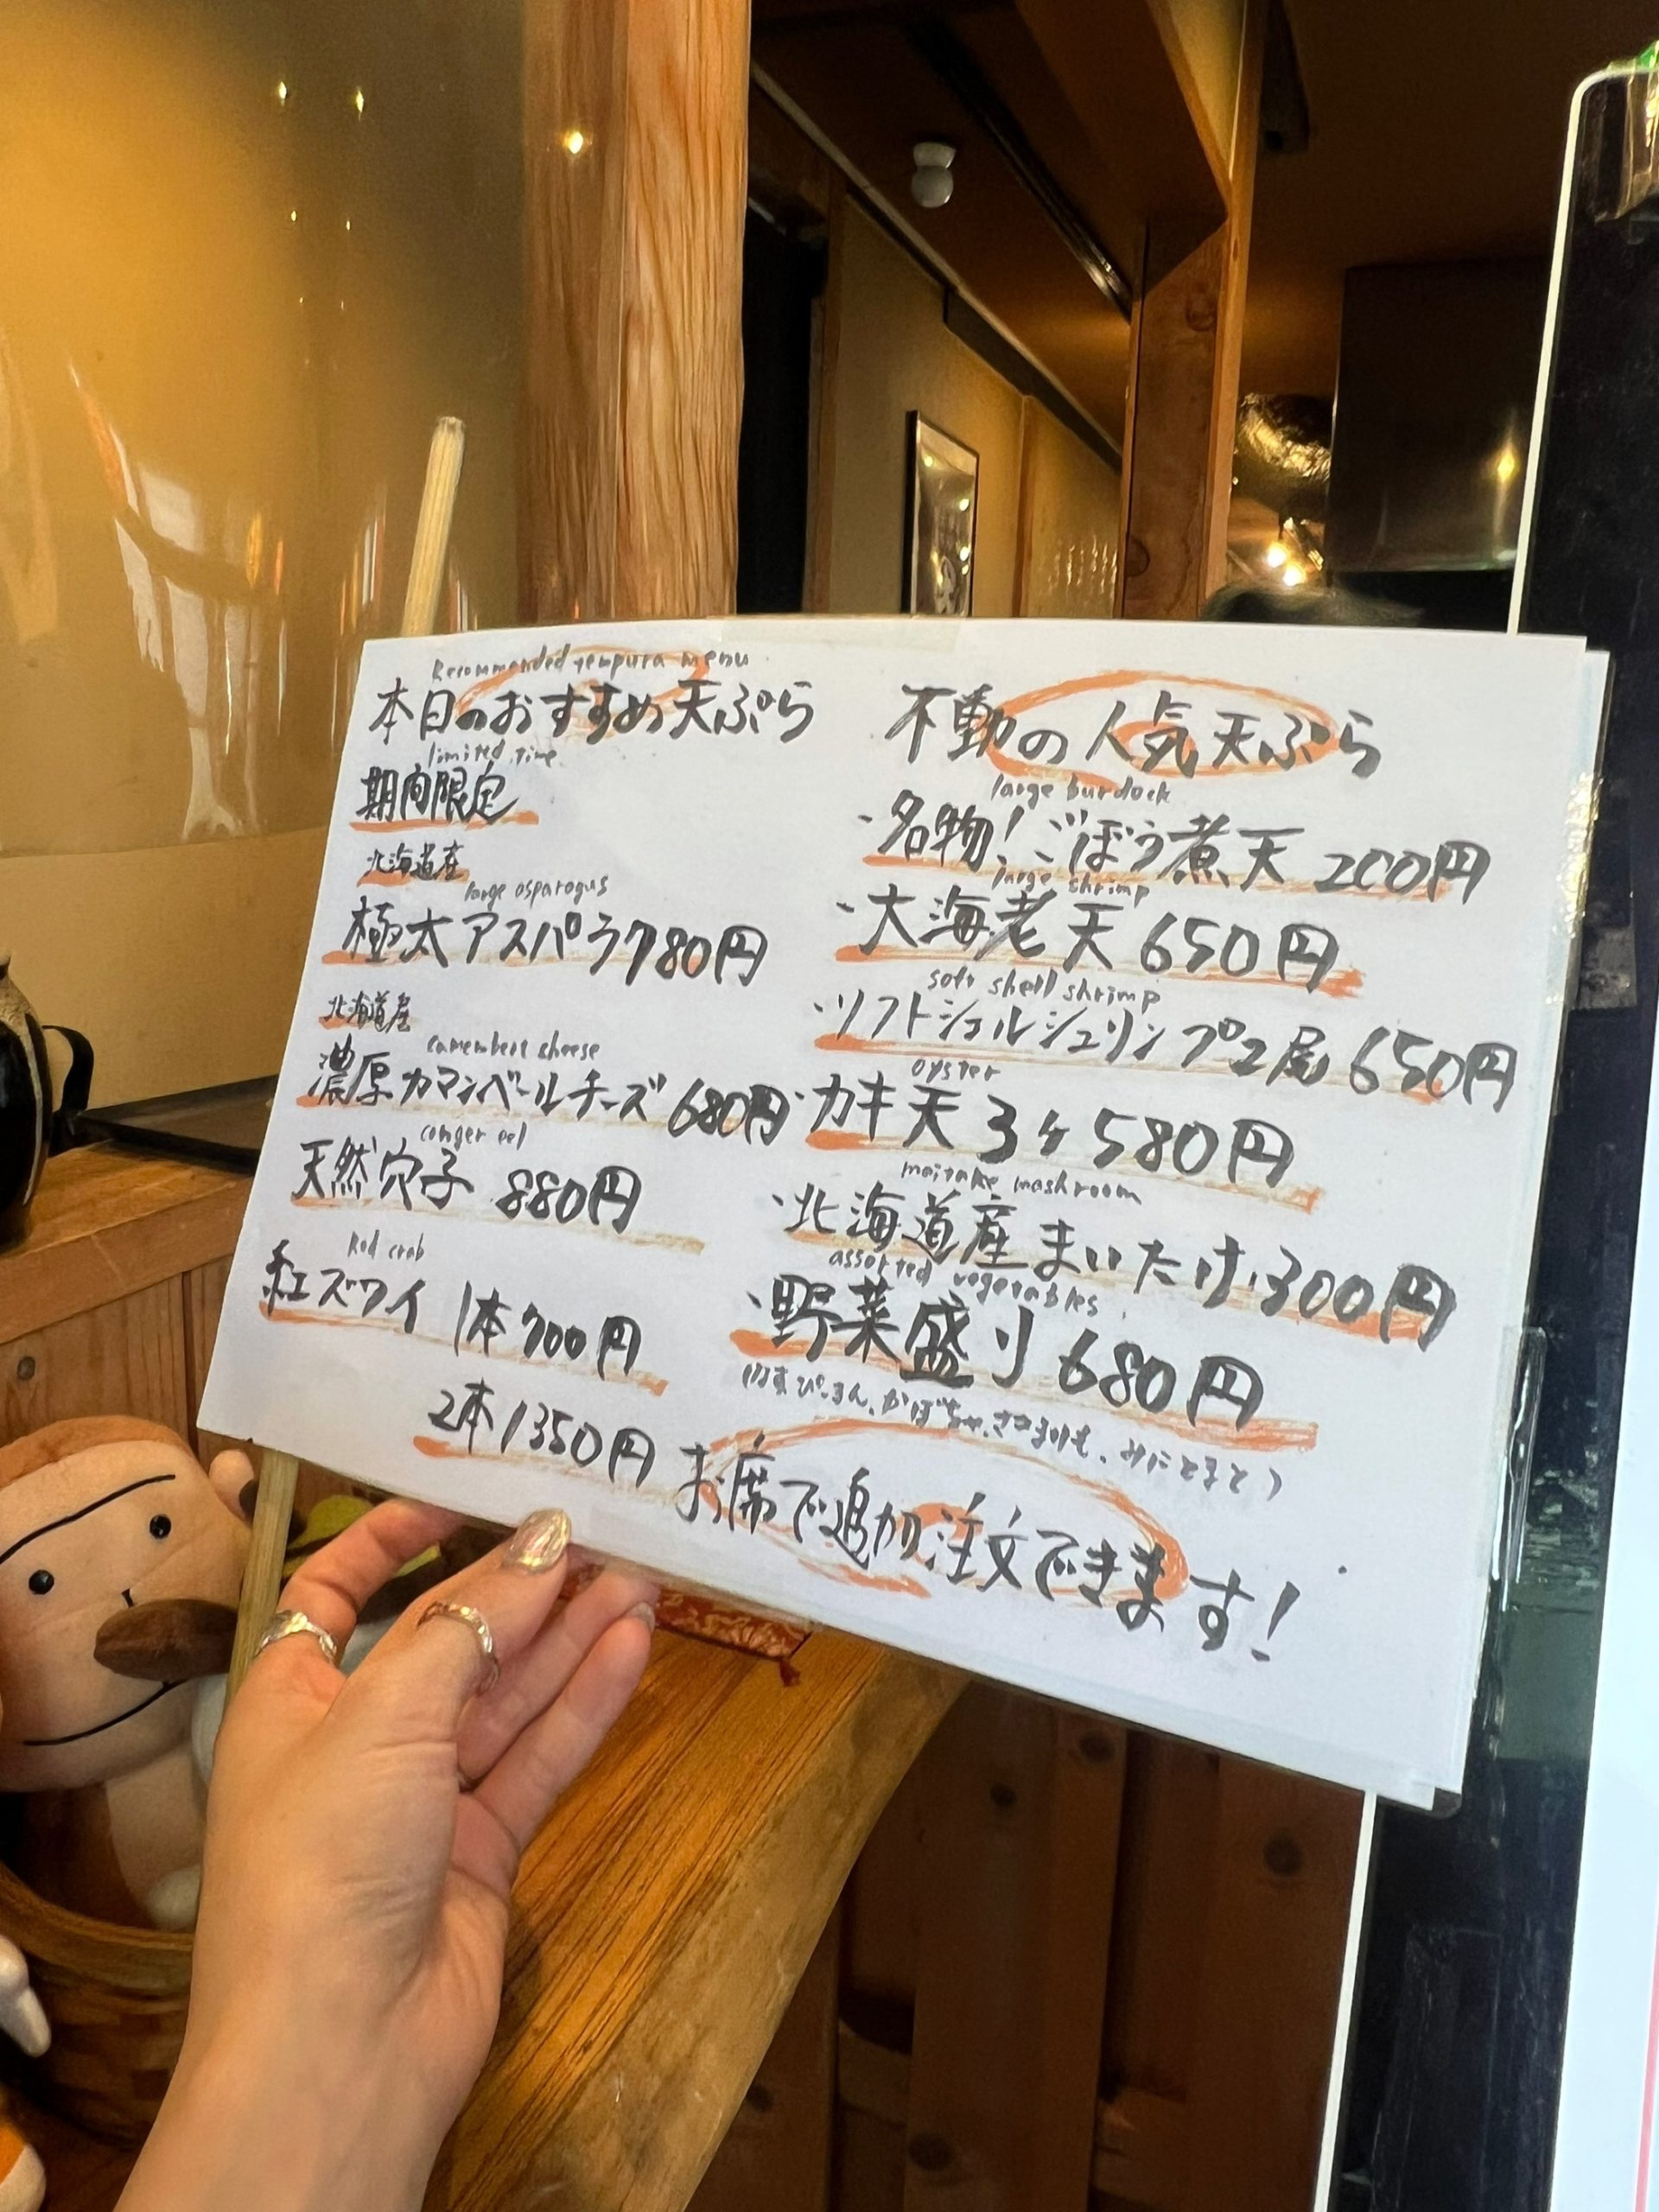 Recommended tempura menu
本日のおすすめ天ぷら
limited time
期間限定
北海道産
large asparagus
極太アスパラ780円
北海道産
camembert cheese
濃厚カマンベールチーズ 680円
conger eel
天然穴子 880円
Red crab
紅ズワイ 1本700円
2本1350円
不動の人気天ぷら
large burdock
・名物!ごぼう煮天 200円
large shrimp
・大海老天 650円
soft shell shrimp
・ソフトシェルシュリンプ2尾 650円
oyster
・カキ天 3ヶ580円
maitake mashroom
・北海道産まいたけ300円
assorted vegetables
・野菜盛り 680円
かぼちゃ、さつまいも、みにとまと)
お席で追加注文できます!